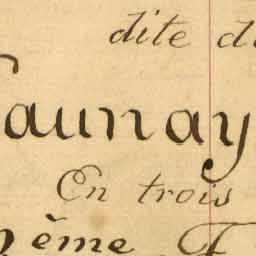 dite d
aunay
En trois
ème F